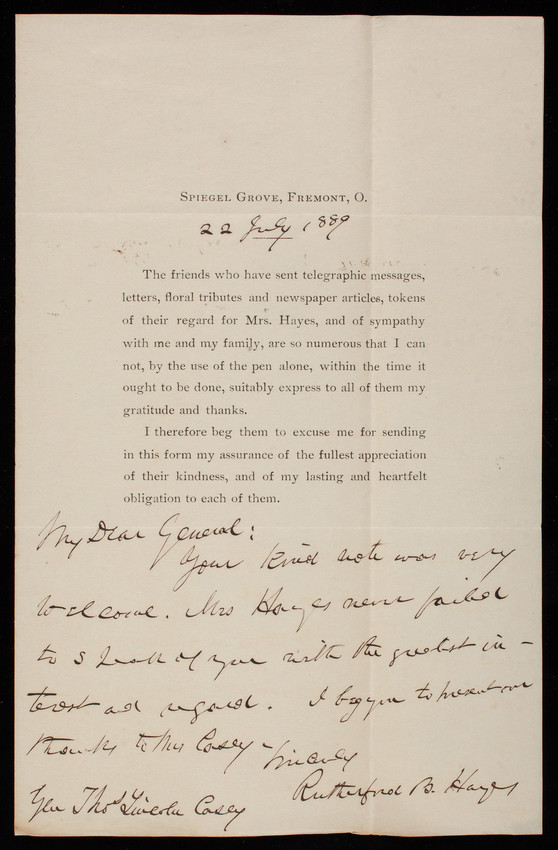 SPIEGEL GROVE, FREMONT, O.
22 July 1889
The friends who have sent telegraphic messages,
letters, floral tributes and newspaper articles, tokens
of their regard for Mrs. Hayes, and of sympathy
with me and my family, are so numerous that I can
not, by the use of the pen alone, within the time it
ought to be done, suitably express to all of them my
gratitude and thanks.
I therefore beg them to excuse me for sending
in this form my assurance of the fullest appreciation
of their kindness, and of my lasting and heartfelt
obligation to each of them.
My Dear General:
Your kind note was very
welcome. Mrs Hayes never failed
to speak of you with the greatest in-
terest and regard. I beg you to present our
thanks to Mrs Casey-
Sincerely
Rutherford B. Hayes
Gen Thos Lincoln Casey